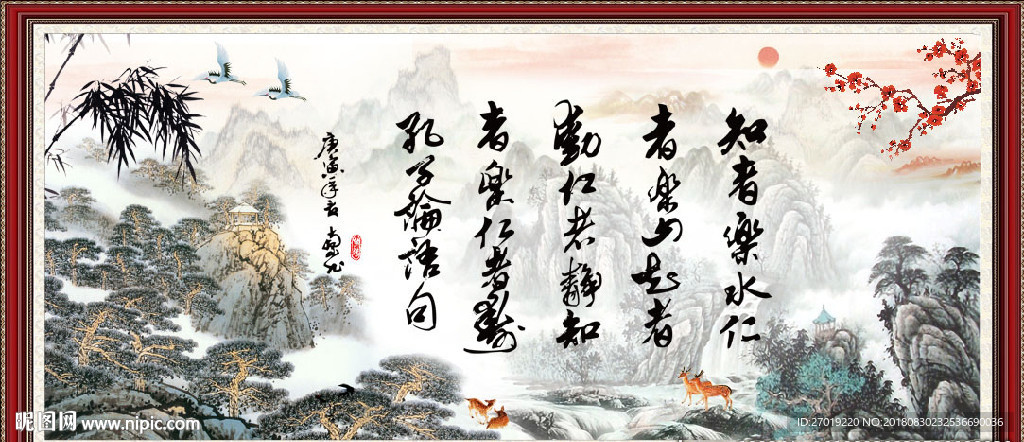 知者樂水仁
者樂山知者
動仁者靜知
者樂仁者壽
孔子論語句
庚寅年春
昵图网 www.nipic.com
ID:27019220 NO:20180830232536690036